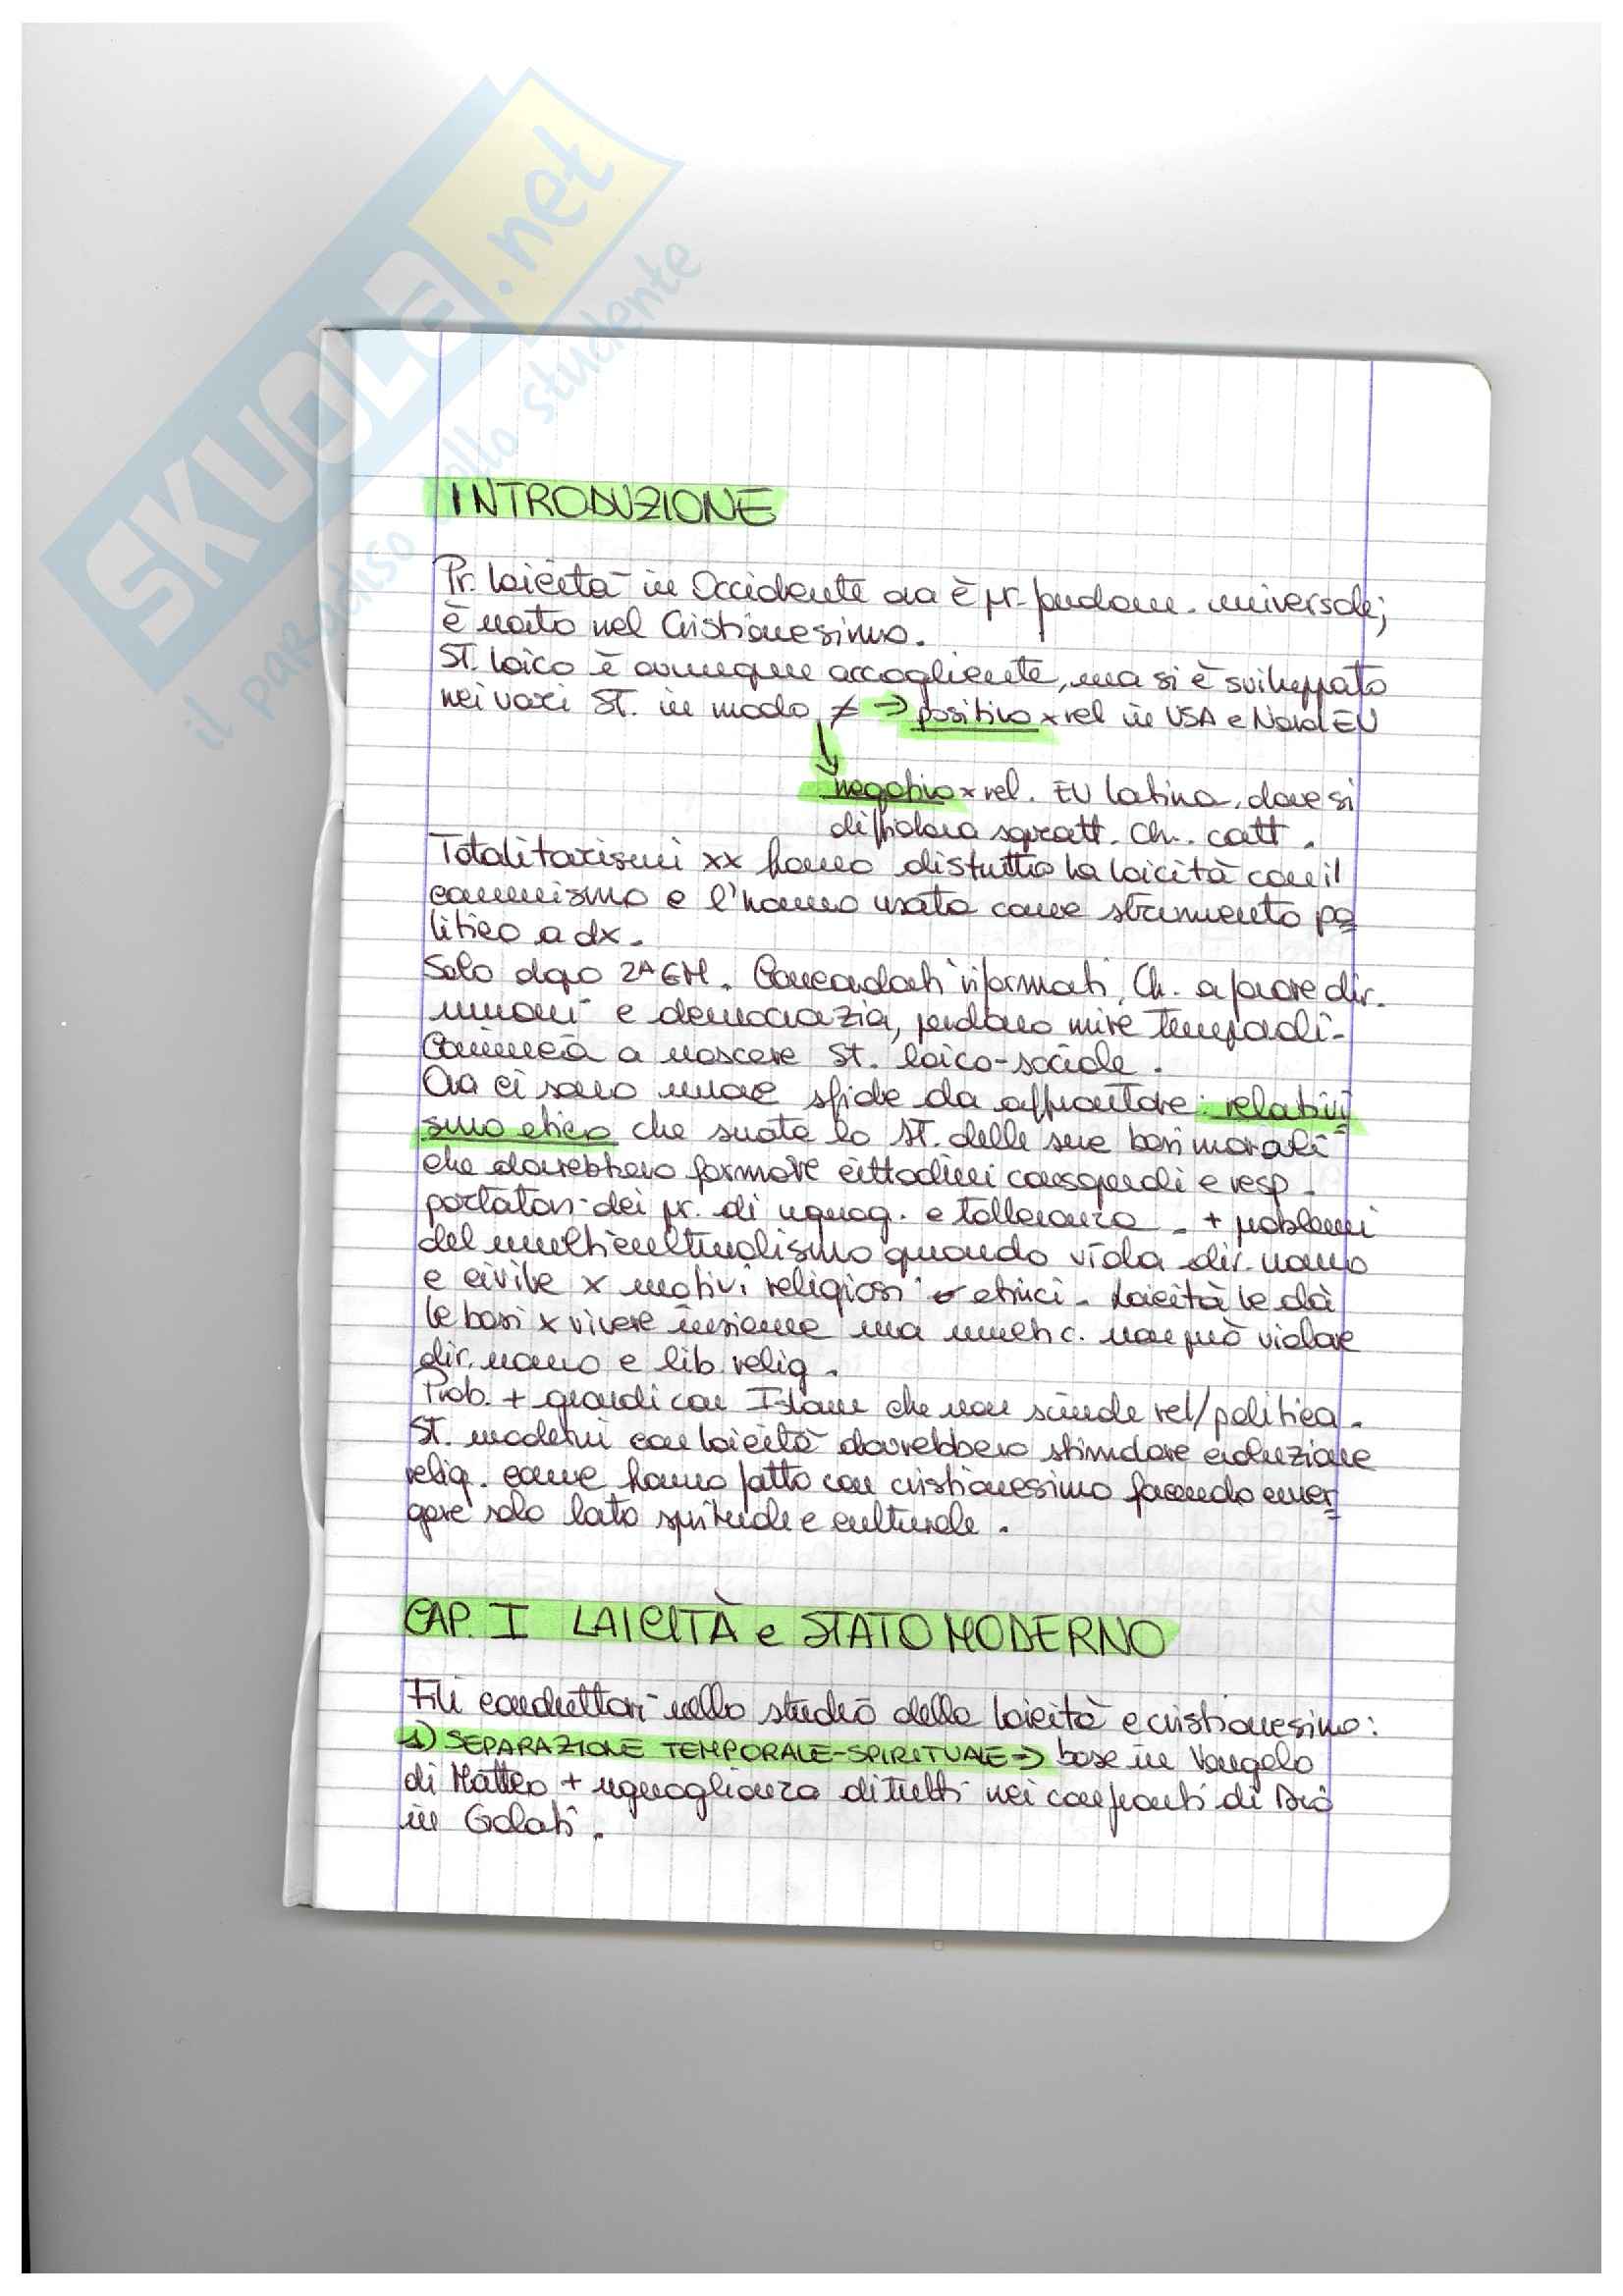 SKUOLA.net
il paradiso dello studente
INTRODUZIONE
Pr. laicità in Occidente ora è pr. fondam. universale;
è nato nel Cristianesimo.
ST. laico è comunque accogliente, ma si è sviluppato
nei vari ST. in modo ≠ → positivo x rel in USA e Nord EU
↓
negativo x rel. EU latina, dove si
diffidava sopratt. Ch. catt.
Totalitarismi XX hanno distrutto la laicità con il
comunismo e l'hanno usata come strumento po
litico a dx.
Solo dopo 2ᴬ GM. Concordati riformati, Ch. a favore dir.
umani e democrazia, perdono mire temporali.
Comincia a nascere St. laico-sociale.
Ora ci sono nuove sfide da affrontare: relativi
smo etico che svuota lo ST. delle sue basi morali
che dovrebbero formare cittadini consapevoli e resp.
portatori dei pr. di uguag. e tolleranza. + problemi
del multiculturalismo quando viola dir. uomo
e civile x motivi religiosi o etnici. Laicità le dà
le basi x vivere insieme ma multic. non può violare
dir. uomo e lib. relig.
Prob. + grandi con Islam che non scinde rel/politica.
ST. moderni con laicità dovrebbero stimolare evoluzione
relig. come hanno fatto con cristianesimo facendo emer
gere solo lato spirituale e culturale.
CAP. I LAICITÀ e STATO MODERNO
Fili conduttori nello studio della laicità e cristianesimo:
1) SEPARAZIONE TEMPORALE-SPIRITUALE ⇒ base in Vangelo
di Matteo + uguaglianza di tutti nei confronti di Dio
in Galati.